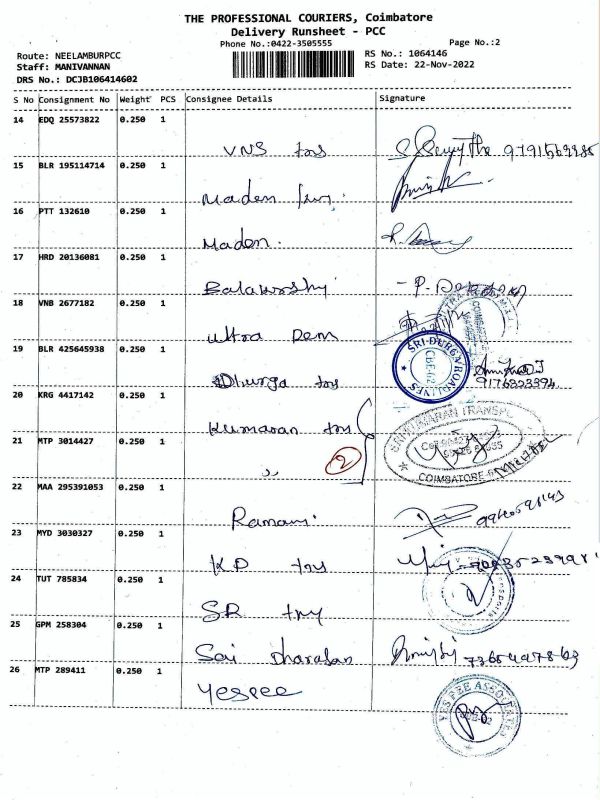 THE PROFESSIONAL COURIERS, Coimbatore
Delivery Runsheet - PCC
Phone No.:0422-3505555
Page No.:2
Route: NEELAMBURPCC
RS No.: 1064146
Staff: MANIVANNAN
RS Date: 22-Nov-2022
DRS No.: DCJB106414602
S No Consignment No Weight PCS Consignee Details Signature
14 EDQ 25573822 0.250 1
VNS trs
15 BLR 195114714 0.250 1
Maden
16 PTT 132610 0.250 1
Maden.
17 HRD 20136081 0.250 1
18 VNB 2677182 0.250 1
Ultra Dem
19 BLR 425645938 0.250 1
Dhurga trs
SRI-DURGA ROADLINES
CBE-62
9176323394
20 KRG 4417142 0.250 1
Kumaran trs
21 MTP 3014427 0.250 1
„
2
COIMBATORE
22 MAA 295391053 0.250 1
Ramani.
23 MYD 3030327 0.250 1
K.P trs
24 TUT 785834 0.250 1
SR try
25 GPM 258304 0.250 1
Sai Dharasan
26 MTP 289411 0.250 1
Yespee
YESPEE ASSOCIATES